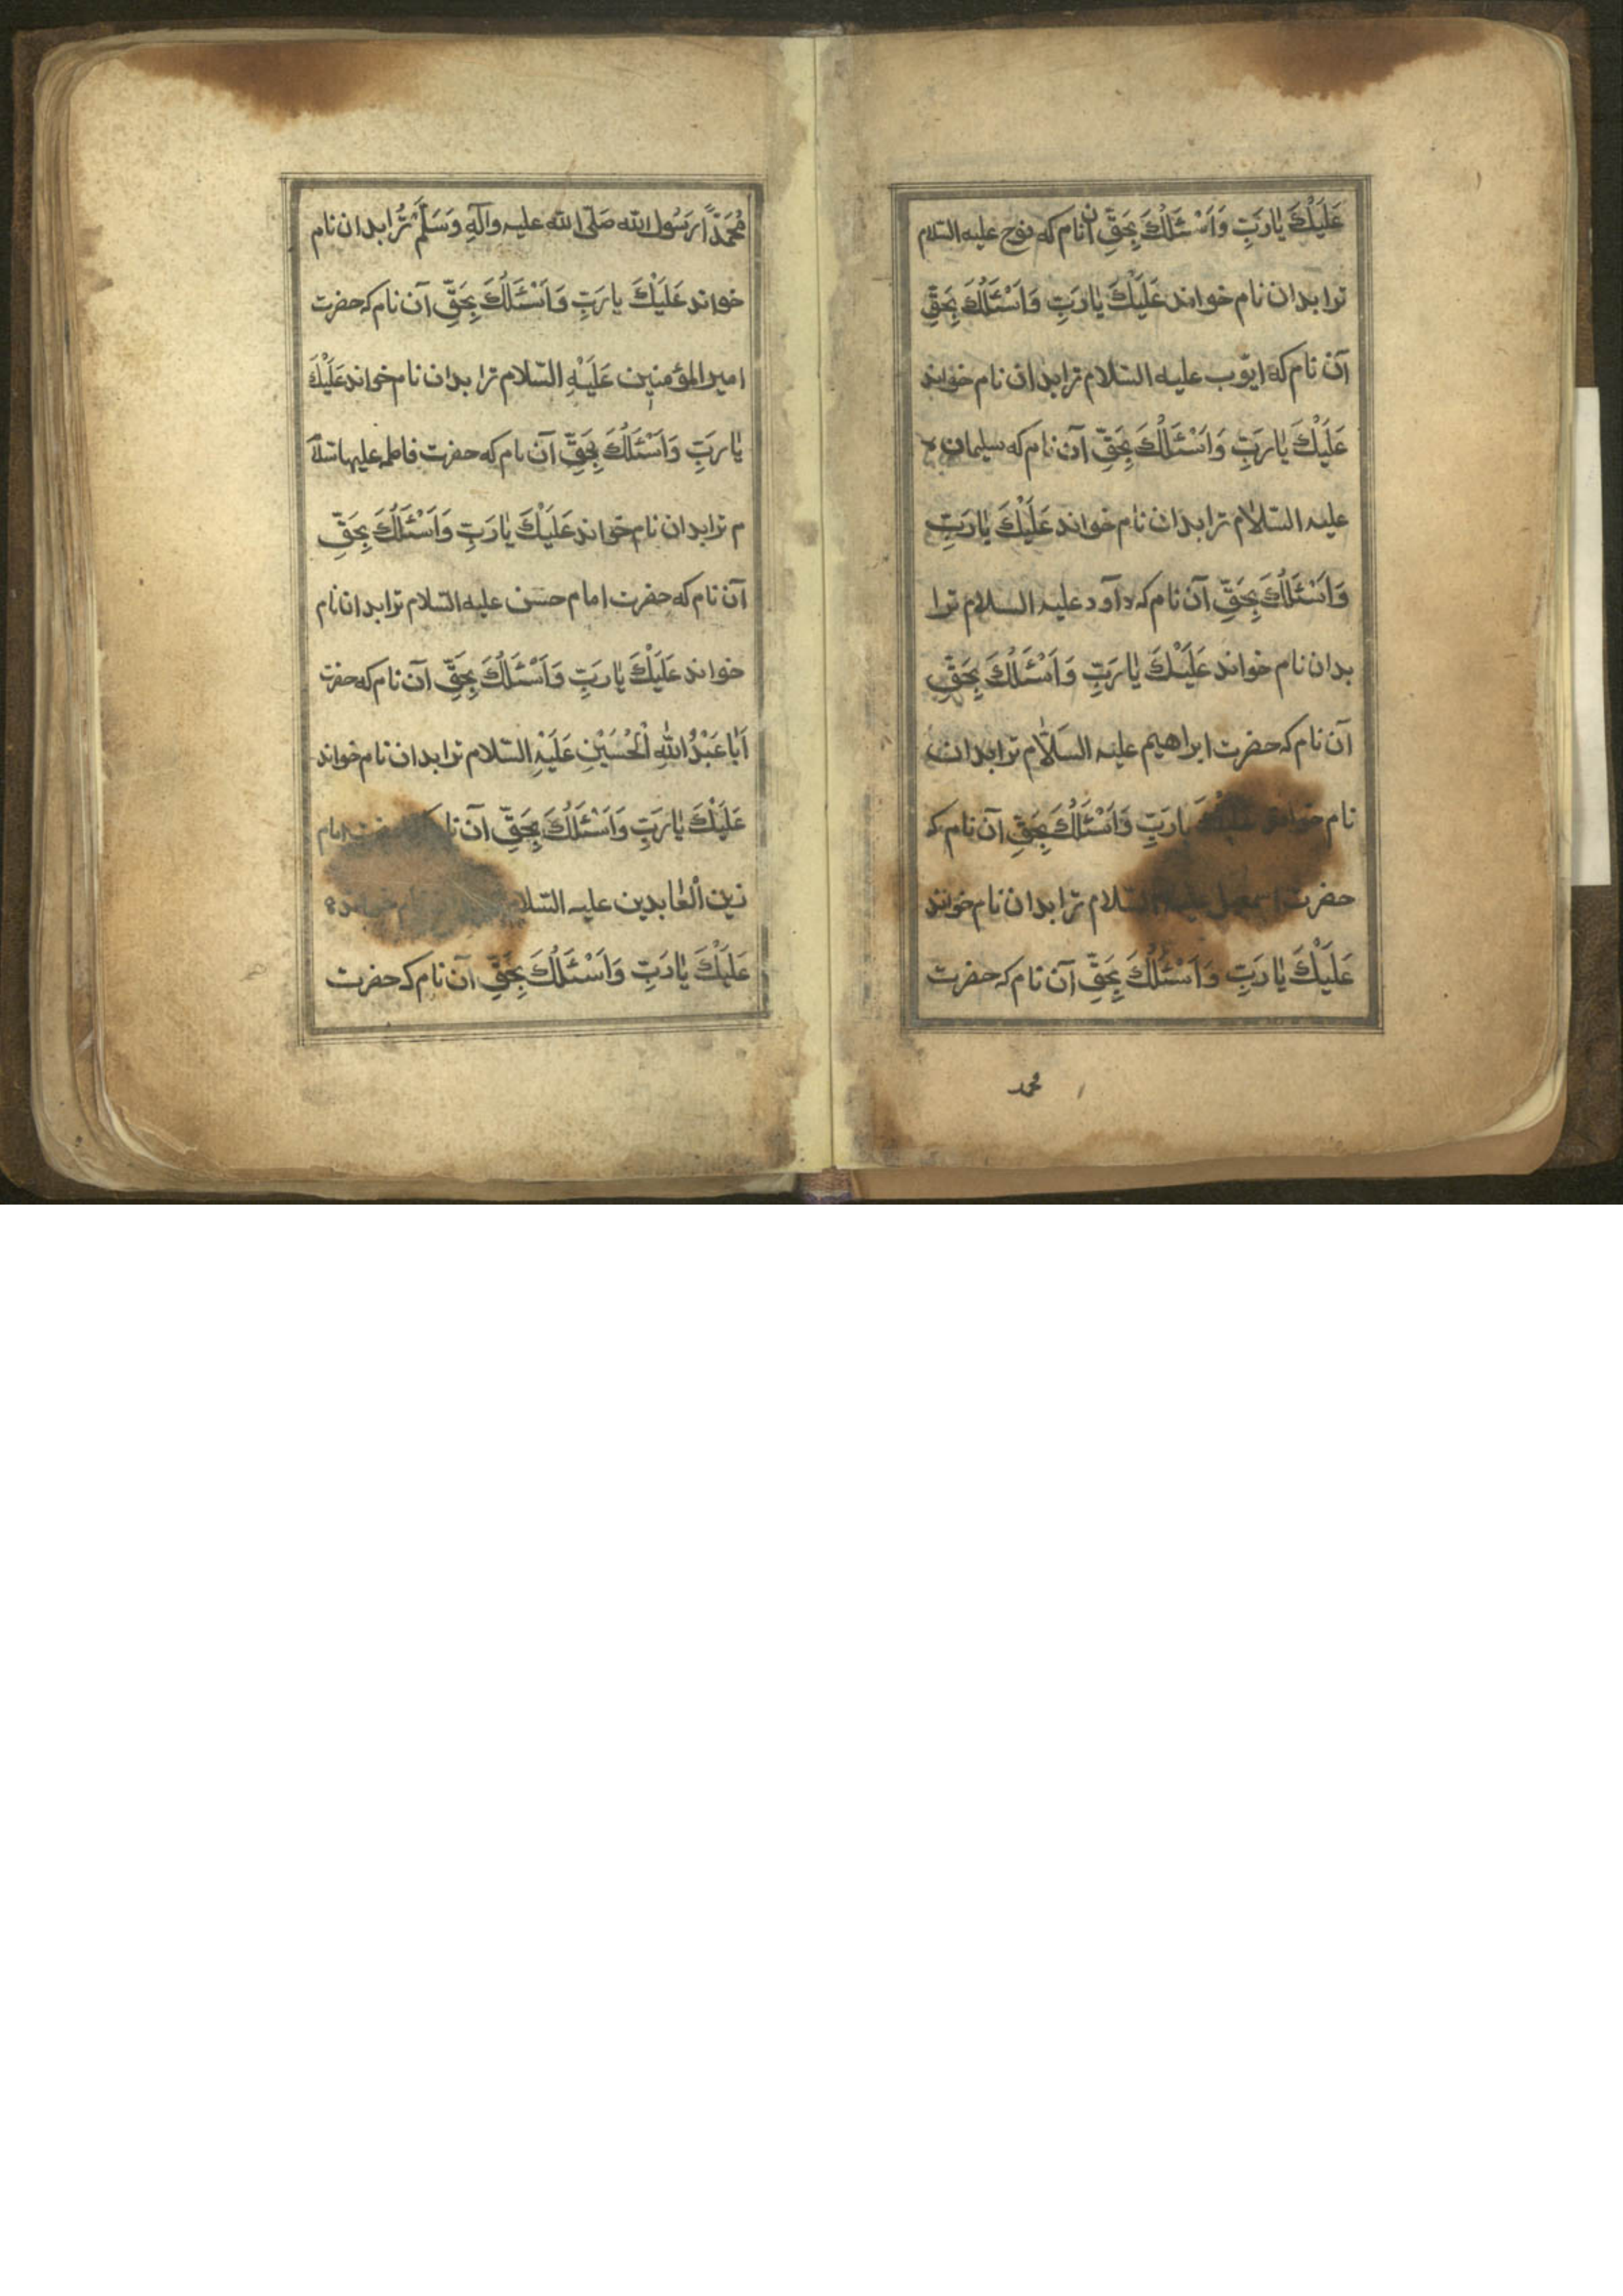 عَلَيْكَ يٰا رَبِّ وَاَسْئَلُكَ بِحَقِّ آن نام که نوح علیه السّلام
ترا بدان نام خواند عَلَيْكَ يٰا رَبِّ وَاَسْئَلُكَ بِحَقِّ
آن نام که ایّوب علیه السّلام ترا بدان نام خواند
عَلَيْكَ يٰا رَبِّ وَاَسْئَلُكَ بِحَقِّ آن نام که سلیمان
علیه السّلام ترا بدان نام خواند عَلَيْكَ يٰا رَبِّ
وَاَسْئَلُكَ بِحَقِّ آن نام که داود علیه السلام ترا
بدان نام خواند عَلَيْكَ يٰا رَبِّ وَاَسْئَلُكَ بِحَقِّ
آن نام که حضرت ابراهیم علیه السّلام ترا بدان
نام خواند عَلَيْكَ يٰا رَبِّ وَاَسْئَلُكَ بِحَقِّ آن نام که
حضرت اسمعیل علیه السّلام ترا بدان نام خواند
عَلَيْكَ يٰا رَبِّ وَاَسْئَلُكَ بِحَقِّ آن نام که حضرت
محمد
مُحَمَّدًا رَسُول الله صَلّی الله علیه وآلهِ وَسَلَّمْ تُرا بدان نام
خواند عَلَيْكَ يا رَبِّ وَاَسْئَلُكَ بِحَقِّ آن نام که حضرت
امیر المؤمنین عَلَيْهِ السّلام ترا بدان نام خواند عَلَيْكَ
يٰا رَبِّ وَاَسْئَلُكَ بِحَقِّ آن نام که حضرت فاطمه علیها سّلا
م ترا بدان نام خواند عَلَيْكَ يٰا رَبِّ وَاَسْئَلُكَ بِحَقِّ
آن نام که حضرت امام حسن علیه السّلام ترا بدان نام
خواند عَلَيْكَ يٰا رَبِّ وَاَسْئَلُكَ بِحَقِّ آن نام که حضرت
اَبٰا عَبْدُ اللّٰهِ الْحُسَيْنِ عَلَيْهِ السّلام ترا بدان نام خواند
عَلَيْكَ يٰا رَبِّ وَاَسْئَلُكَ بِحَقِّ آن نام که حضرت امام
زین الْعٰابدین علیه السّلام نام خواند
عَلَيْكَ يٰا رَبِّ وَاَسْئَلُكَ بِحَقِّ آن نام که حضرت